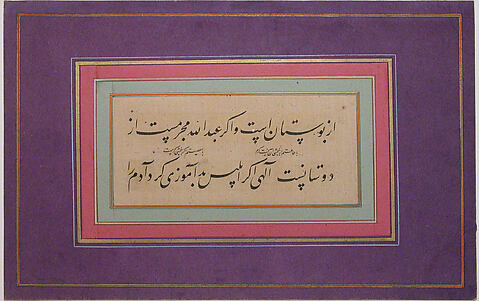 از بوستان است و اگر عبدالله مجرمست از
دوستانست الهی اگر ابلیس بدآموزی کرد آدم را